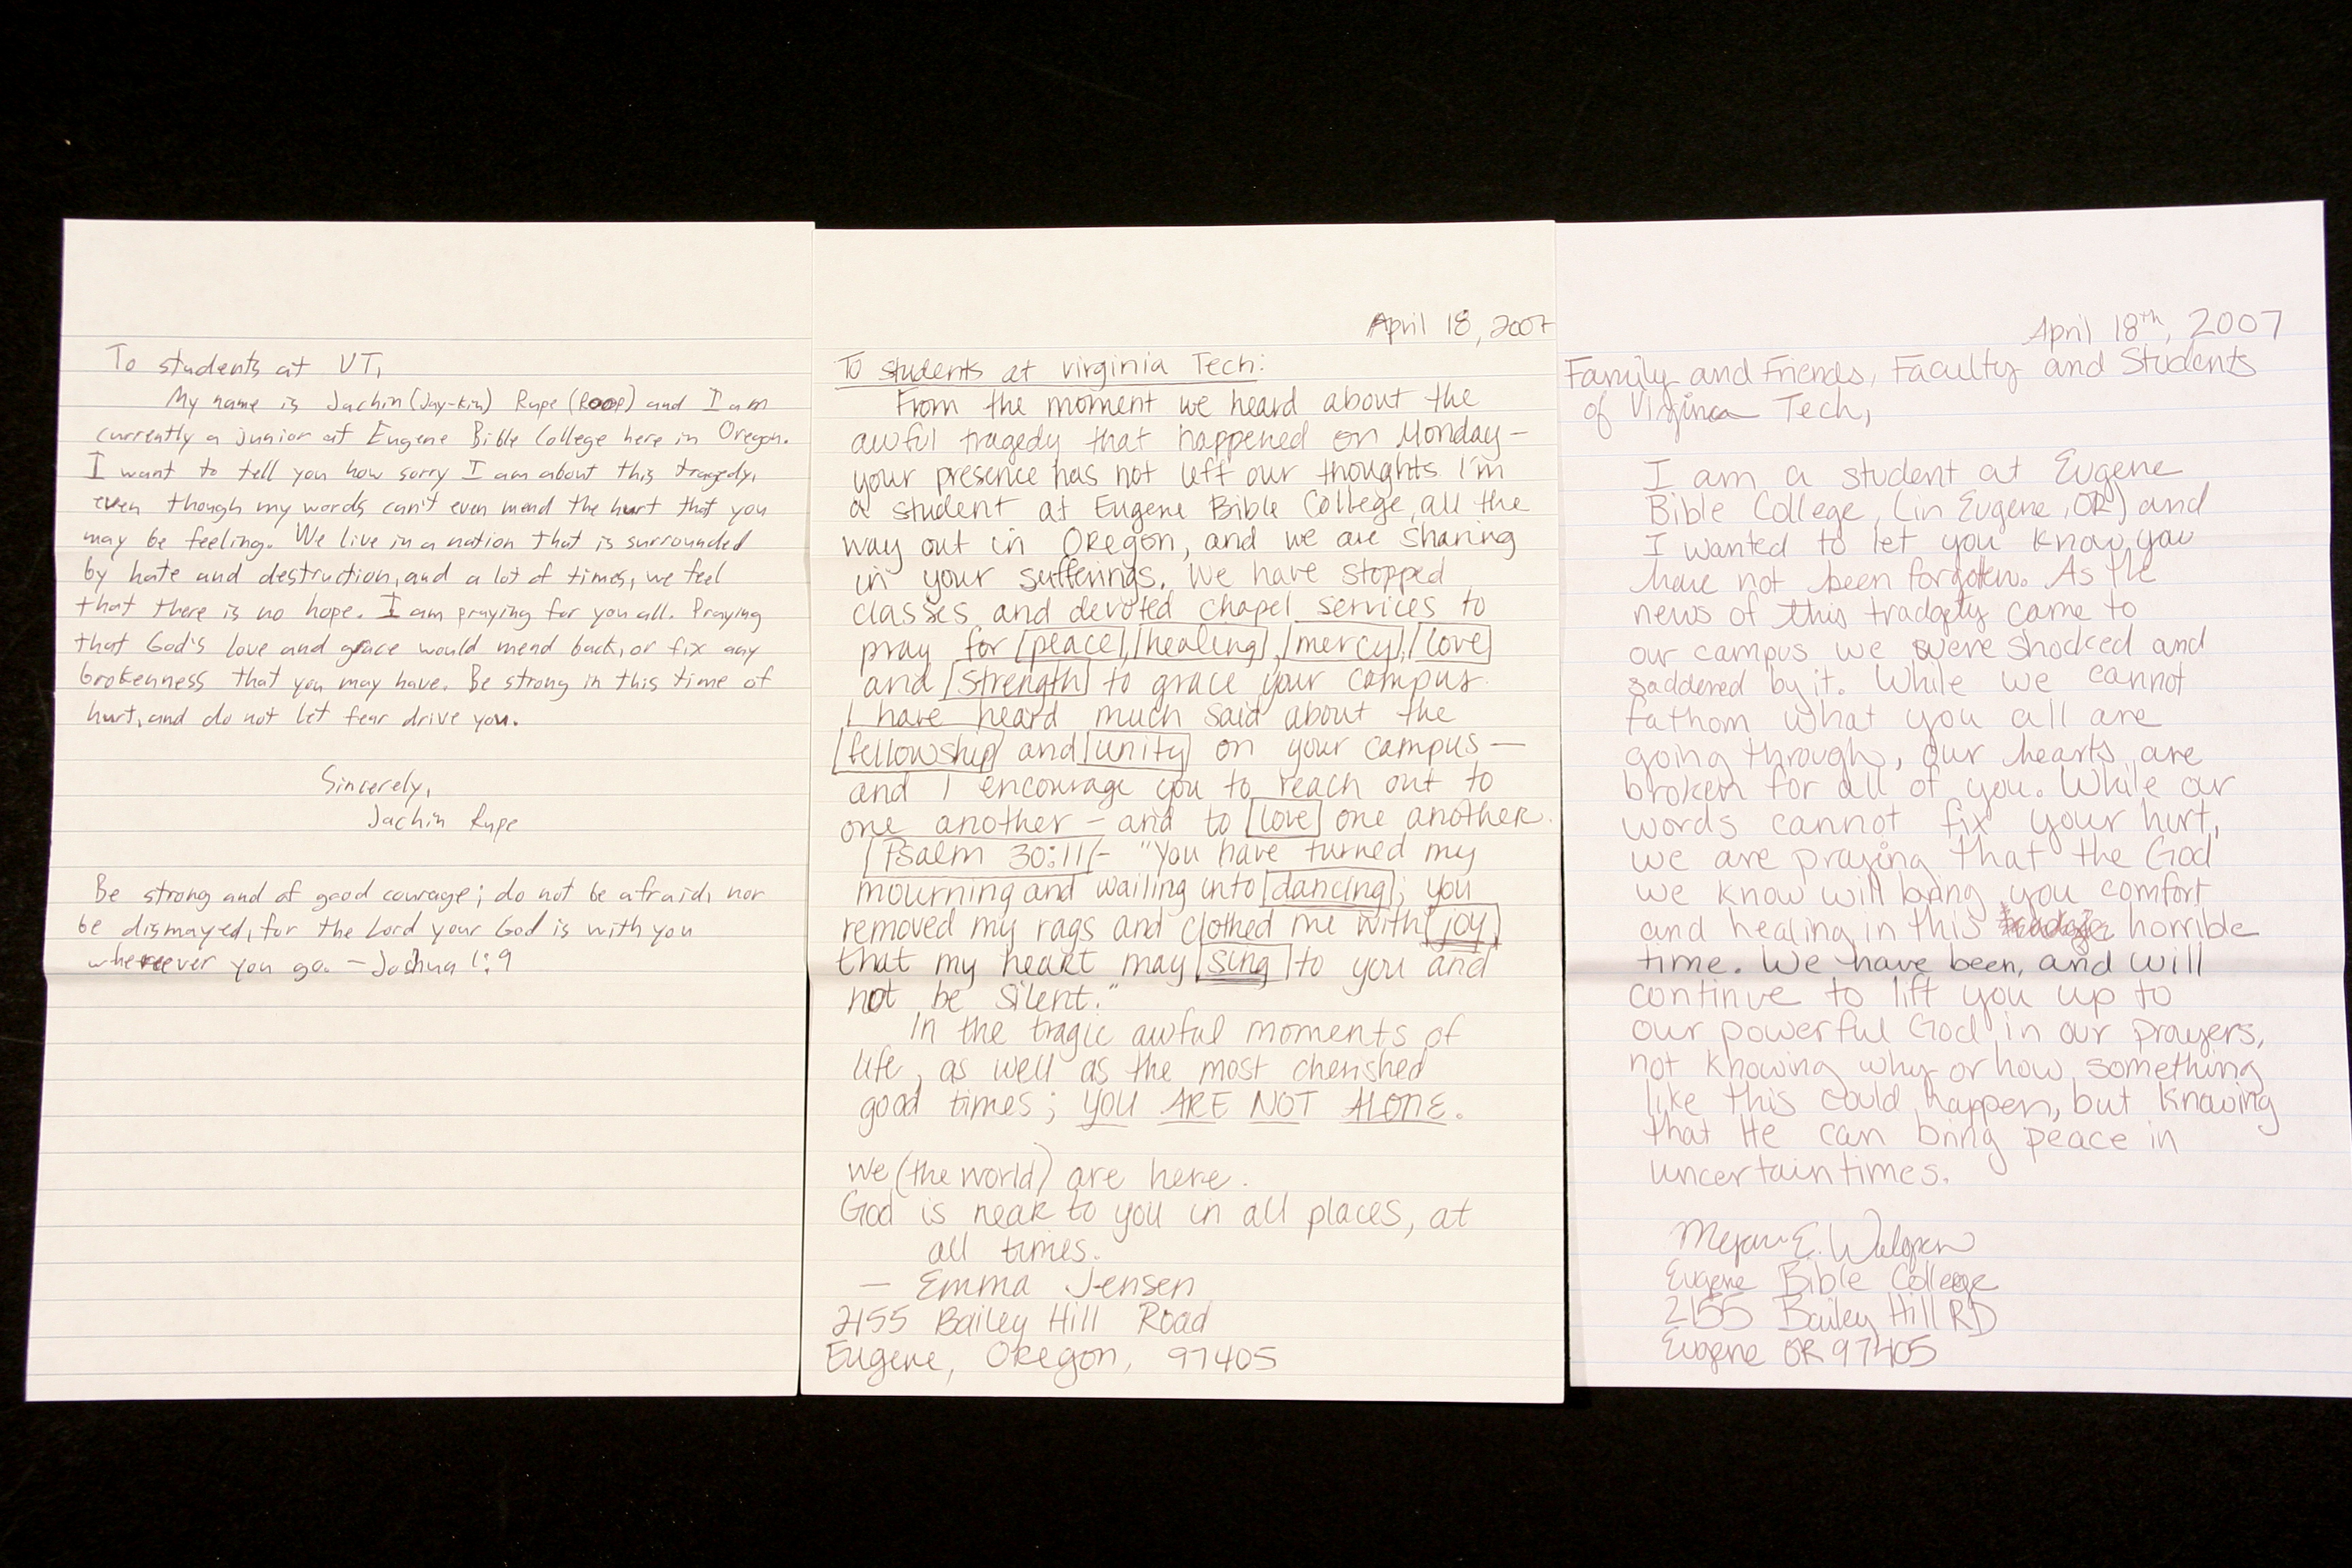 To students at VT,
My name is Jachin (Jay-kin) Rupe (Roop) and I am
currently a junior at Eugene Bible College here in Oregon.
I want to tell you how sorry I am about this tragedy,
even though my words can't even mend the hurt that you
may be feeling. We live in a nation that is surrounded
by hate and destruction, and a lot of times, we feel
that there is no hope. I am praying for you all. Praying
that God's love and grace would mend back, or fix any
brokenness that you may have. Be strong in this time of
hurt, and do not let fear drive you.
Sincerely,
Jachin Rupe
Be strong and of good courage; do not be afraid, nor
be dismayed, for the Lord your God is with you
wherever you go. - Joshua 1:9
April 18, 2007
To students at Virginia Tech:
From the moment we heard about the
awful tragedy that happened on Monday -
your presence has not left our thoughts. I'm
a student at Eugene Bible College, all the
way out in Oregon, and we are sharing
in your sufferings. We have stopped
classes and devoted chapel services to
pray for peace, healing, mercy, love
and strength to grace your campus.
I have heard much said about the
fellowship and unity on your campus -
and I encourage you to reach out to
one another - and to love one another.
Psalm 30:11 - "You have turned my
mourning and wailing into dancing; you
removed my rags and clothed me with joy,
that my heart may sing to you and
not be silent."
In the tragic awful moments of
life, as well as the most cherished
good times; YOU ARE NOT ALONE.
We (the world) are here.
God is near to you in all places, at
all times.
- Emma Jensen
2155 Bailey Hill Road
Eugene, Oregon, 97405
April 18th, 2007
Family and Friends, Faculty and Students
of Virginia Tech,
I am a student at Eugene
Bible College, (in Eugene, OR) and
I wanted to let you know you
have not been forgotten. As the
news of this tradgety came to
our campus we were shocked and
saddened by it. While we cannot
fathom what you all are
going through, our hearts are
broken for all of you. While our
words cannot fix your hurt,
we are praying that the God
we know will bring you comfort
and healing in this horrible
time. We have been, and will
continue to lift you up to
our powerful God in our prayers,
not knowing why or how something
like this could happen, but knowing
that He can bring peace in
uncertain times.
E.
Eugene Bible College
2155 Bailey Hill RD
Eugene OR 97405